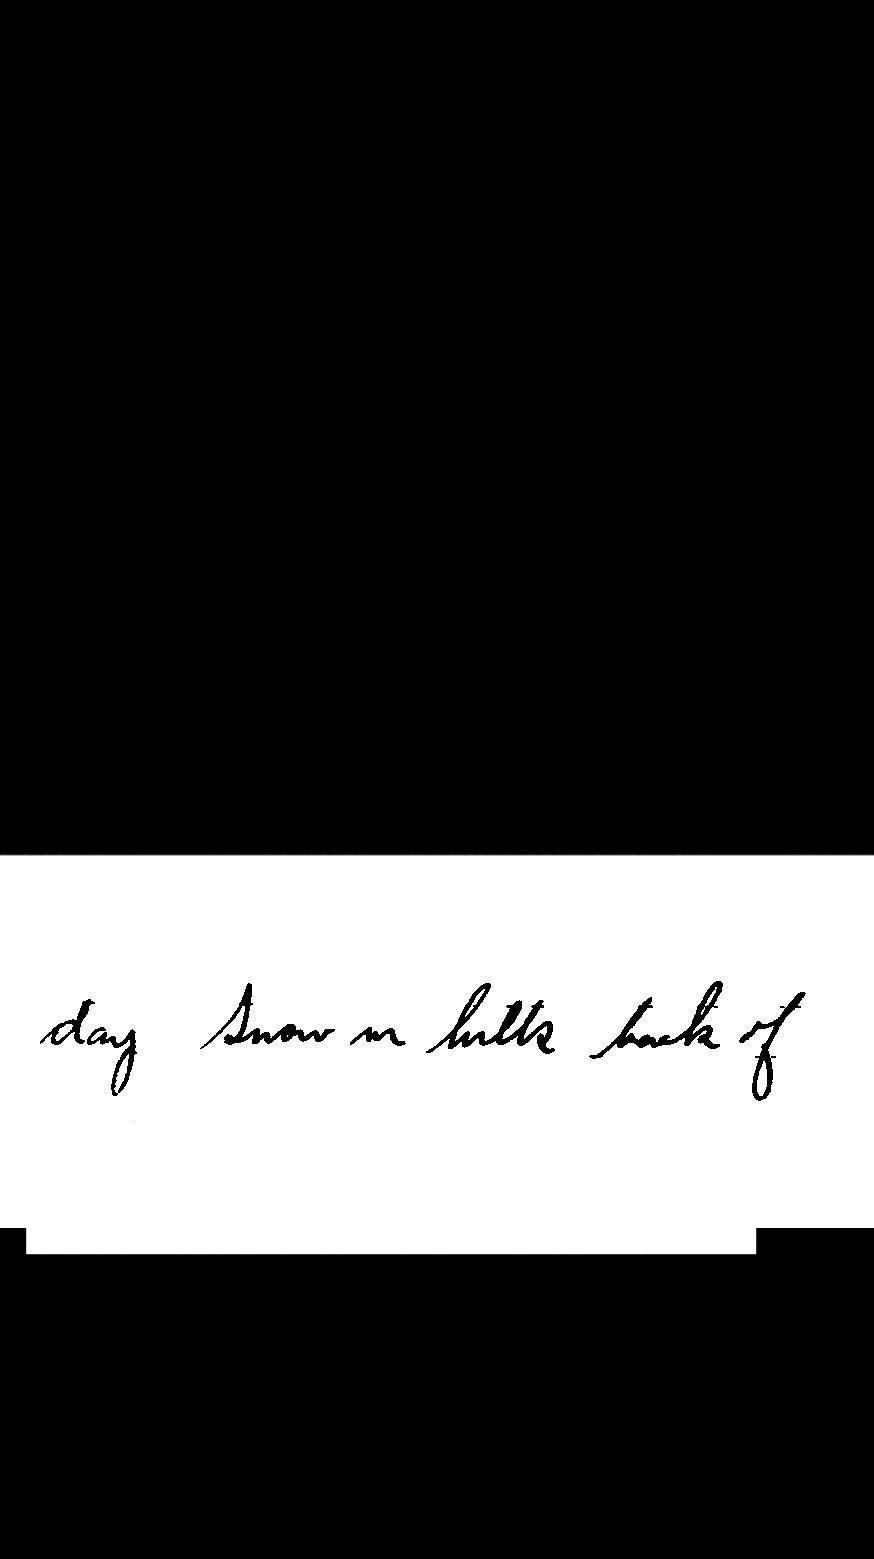 day Snow in hills back of